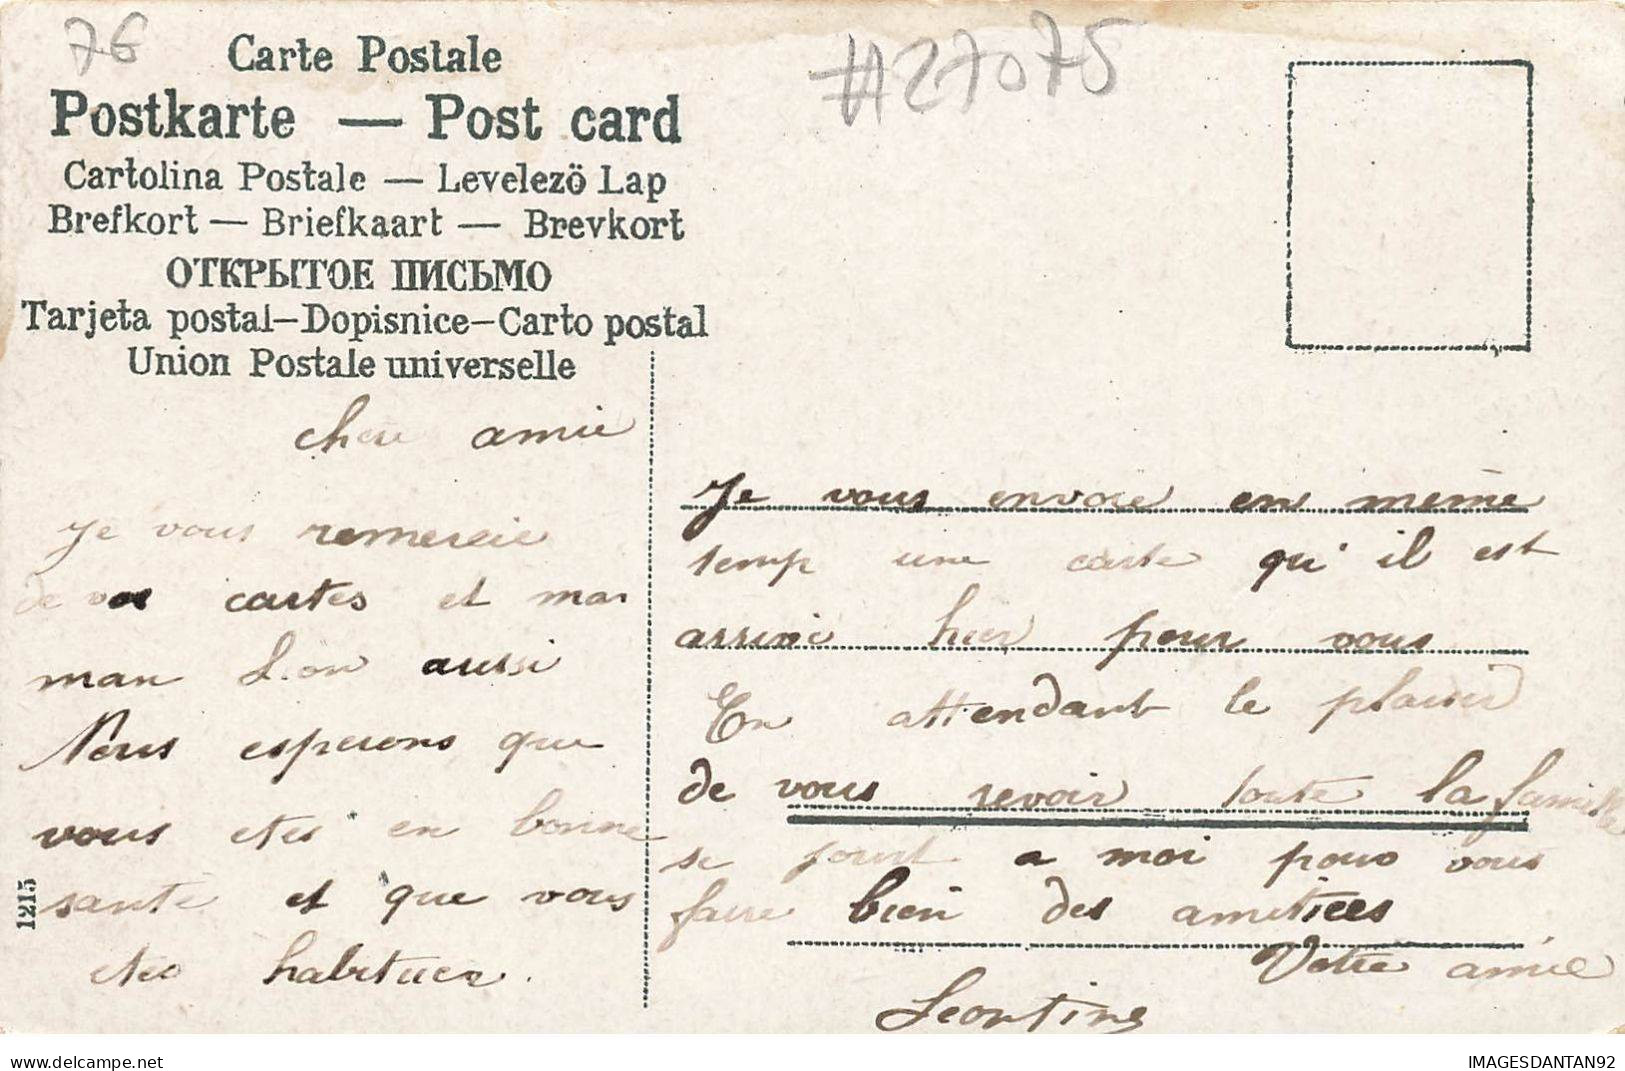 76
#27075
Carte Postale
Postkarte — Post card
Cartolina Postale — Levelezö Lap
Brefkort — Briefkaart — Brevkort
ОТКРЫТОЕ ПИСЬМО
Tarjeta postal–Dopisnice–Carto postal
Union Postale universelle
chere amie
Je vous remercie
de vos cartes et ma
man Léon aussi
Nous esperons que
vous etes en bonne
santé et que vous
etes habituer.
1215
Je vous envoie en même
temp une carte qu'il est
arrivé hier pour vous
En attendant le plaisir
de vous revoir toute la famille
se joint a moi pour vous
faire bien des amitiees
Votre amie
Leontine
delcampe.net
IMAGESDANTAN92